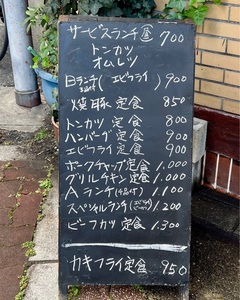 サービスランチ 700
トンカツ
オムレツ
Bランチ(エビフライ) 900
焼豚定食 850
トンカツ定食 800
ハンバーグ定食 900
エビフライ定食 900
ポークチャップ定食 1.000
グリルチキン定食 1.000
Aランチ 1.100
スペシャルランチ 1.200
ビーフカツ定食 1.300
カキフライ定食 950